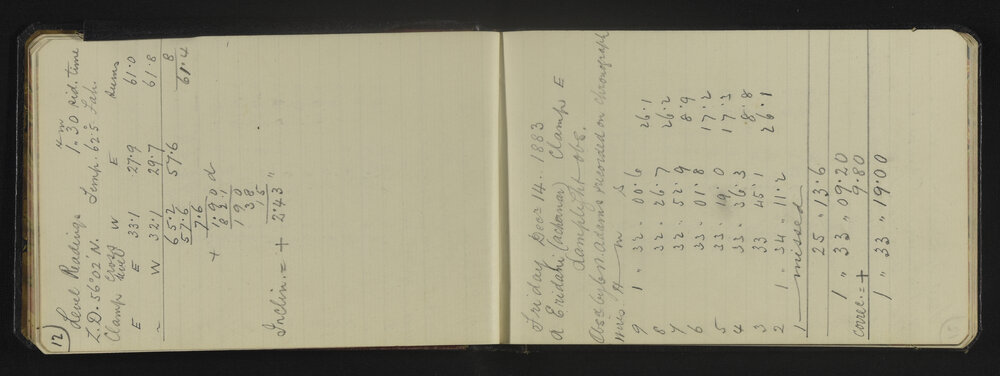 12
Level Readings 1h. 30m sid. time
Z.D. 56°02' N. Temp. 62.5 Fah.
Clamp Cross level W E sums
E E 33.1 27.9 61.0
~ W 32.1 29.7 61.8
65.2 57.6 8
57.6 61.4
+ 7.6
1.90 d
821
190
38
1,5
Inclin. = + 2.43"
Friday Decr 14.. 1883
α Eridani (achernar) Clamp E
Lamplight obs.
Obsd by C. N. Adams recorded on chronograph
wires h m s
9 1 " 32 .. 00.6 26.1
8 32 .. 26.7 26.2
7 32 .. 52.9 8.9
6 33 .. 01.8 17.2
5 33 .. 19.0 17.3
4 33 .. 36.3 8.8
3 33 45.1 26.1
2 1 " 34 " 11.2
1 — missed
25 " 13.6
1 " 33 " 09.20
correc. = + 9.80
1 " 33 " 19.00